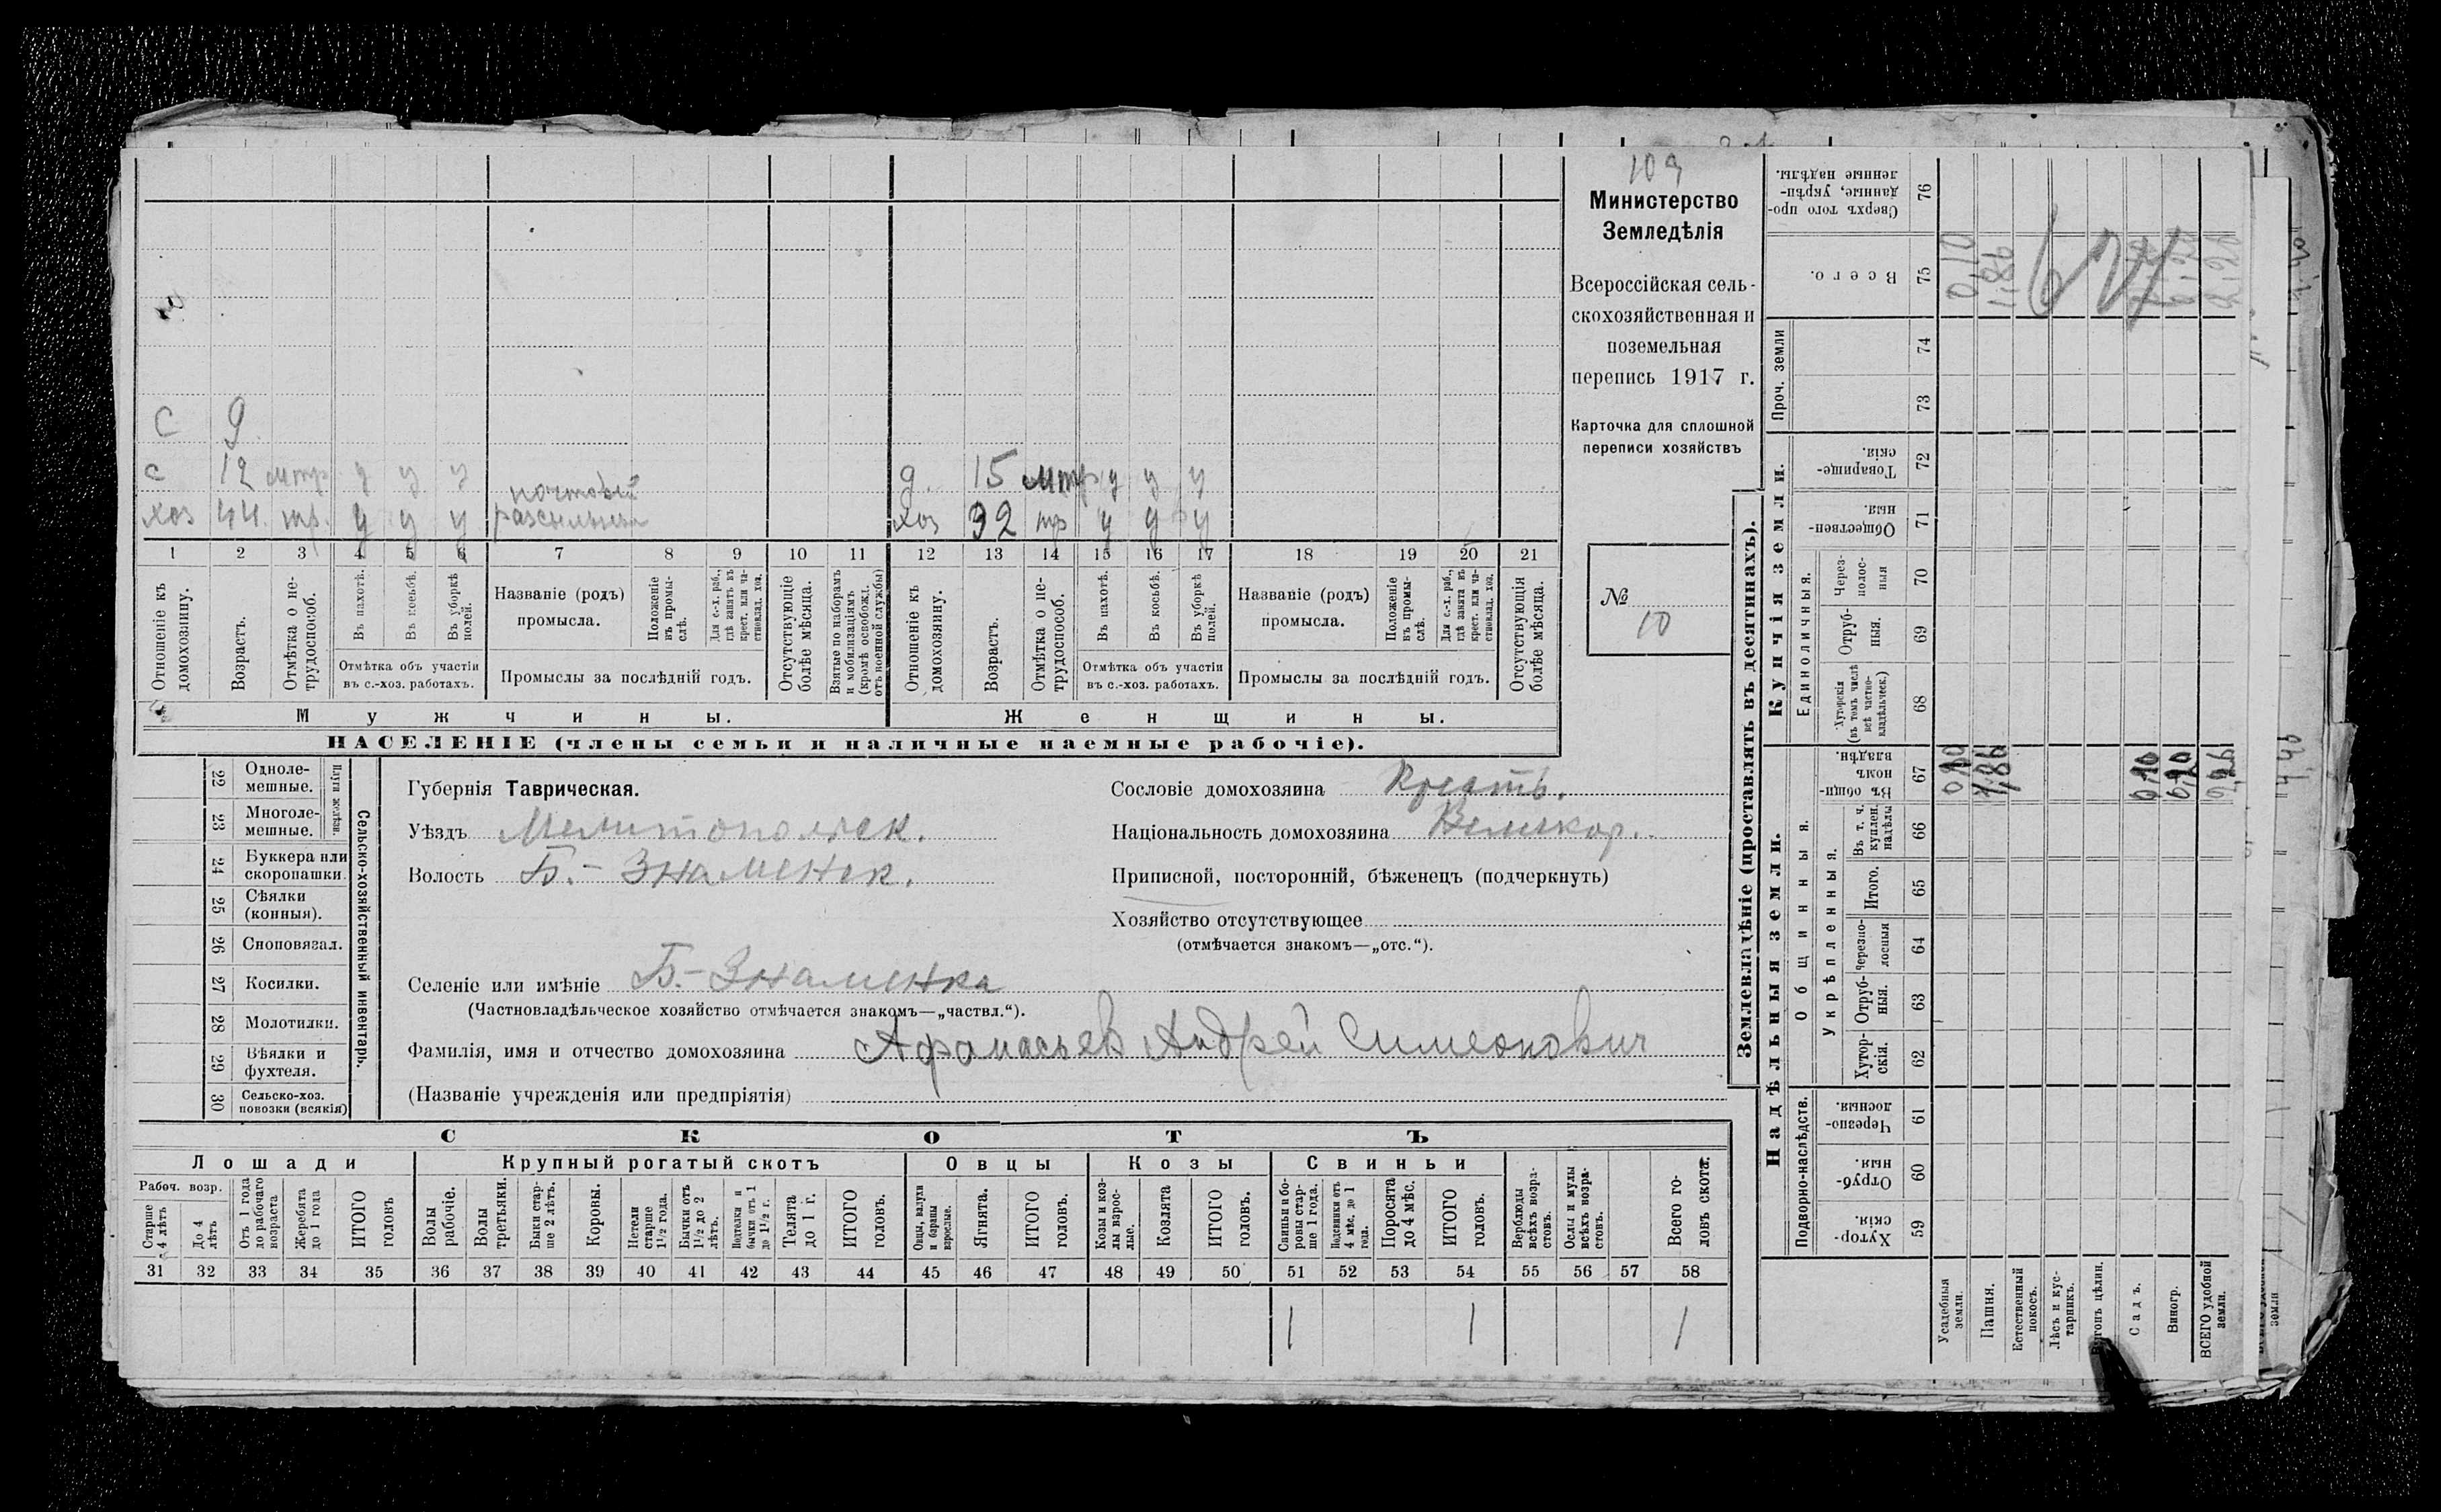 109
Министерство
Земледѣлія
Всероссійская сель-
скохозяйственная и
поземельная
перепись 1917 г.
Карточка для сплошной
переписи хозяйствъ
№
10
С 9
с 12 мтр у у у
д. 15 мтр у у у
почтовый
хоз 44. тр. у у у разсыльный
хоз 32 тр у у у
1 2 3 4 5 6 7 8 9 10 11 12 13 14 15 16 17 18 19 20 21
Отношеніе къ домохозяину.
Возрастъ.
Отмѣтка о не-трудоспособ.
Въ пахотѣ.
Въ косьбѣ.
Въ уборкѣ полей.
Отмѣтка объ участіи
въ с.-хоз. работахъ.
Названіе (родъ)
промысла.
Положеніе въ промы-слѣ.
Для с.-х. раб., гдѣ занятъ въ крест. или ча-стновлад. хоз.
Промыслы за послѣдній годъ.
Отсутствующіе болѣе мѣсяца.
Взятые по наборамъ и мобилизаціямъ (кромѣ освобожд. отъ военной службы)
Отношеніе къ домохозяину.
Возрастъ.
Отмѣтка о не-трудоспособ.
Въ пахотѣ.
Въ косьбѣ.
Въ уборкѣ полей.
Отмѣтка объ участіи
въ с.-хоз. работахъ.
Названіе (родъ)
промысла.
Положеніе въ промы-слѣ.
Для с.-х. раб., гдѣ занята въ крест. или ча-стновлад. хоз.
Промыслы за послѣдній годъ.
Отсутствующія болѣе мѣсяца.
Мужчины.
Женщины.
НАСЕЛЕНІЕ (члены семьи и наличные наемные рабочіе).
Сельско-хозяйственный инвентарь.
22 Одноле-
мешные.
23 Многоле-
мешные.
24 Буккера или
скоропашки.
25 Сѣялки
(конныя).
26 Сноповязал.
27 Косилки.
28 Молотилки.
29 Вѣялки и
фухтеля.
30 Сельско-хоз.
повозки (всякія)
Губернія Таврическая.
Уѣздъ Мелитопольск.
Волость Б.-Знаменск.
Селеніе или имѣніе Б.-Знаменка
(Частновладѣльческое хозяйство отмѣчается знакомъ—„частвл.“).
Фамилія, имя и отчество домохозяина Афанасьев Андрей Симеонович
(Названіе учрежденія или предпріятія)
Сословіе домохозяина Крестъ.
Національность домохозяина Великор.
Приписной, посторонній, бѣженецъ (подчеркнуть)
Хозяйство отсутствующее
(отмѣчается знакомъ—„отс.“).
СКОТЪ
Лошади
Крупный рогатый скотъ
Овцы
Козы
Свиньи
Рабоч. возр.
Старше 4 лѣтъ
До 4 лѣтъ
Отъ 1 года до рабочаго возраста
Жеребята до 1 года
ИТОГО головъ
Волы рабочіе.
Волы третьяки.
Быки стар-ше 2 лѣтъ.
Коровы.
Нетели старше 1½ года.
Бычки отъ 1½ до 2 лѣтъ.
Подтелки и бычки отъ 1 до 1½ г.
Телята до 1 г.
ИТОГО головъ.
Овцы, валухи и бараны взрослые.
Ягнята.
ИТОГО головъ.
Козы и коз-лы взрос-лые.
Козлята
ИТОГО головъ.
Свиньи и бо-ровы стар-ше 1 года.
Подсвинки отъ 4 мѣс. до 1 года.
Поросята до 4 мѣс.
ИТОГО головъ.
Верблюды всѣхъ возра-стовъ.
Ослы и мулы всѣхъ возра-стовъ.
Всего го-ловъ скота.
31 32 33 34 35 36 37 38 39 40 41 42 43 44 45 46 47 48 49 50 51 52 53 54 55 56 57 58
1 1 1
Землевладѣніе (проставлять въ десятинахъ).
Надѣльныя земли.
Купчія земли.
Проч. земли
Подворно-наслѣдств.
Общинныя.
Укрѣпленныя.
Единоличныя.
Сверхъ того про-данные, укрѣп-ленные надѣлы. 76
Всего. 75
74
73
Товарище-скія. 72
Обществен-ныя. 71
Через-полос-ныя 70
Отруб-ныя. 69
Хуторскія (въ томъ числѣ всѣ частно-владѣльческ.) 68
Въ общи-номъ владѣн. 67
Въ т. ч. куплен. надѣлы 66
Итого. 65
Черезпо-лосныя 64
Отруб-ныя. 63
Хутор-скія. 62
Черезпо-лосныя. 61
Отруб-ныя. 60
Хутор-скія. 59
Усадебныя земли.
Пашня.
Естественный покосъ.
Лѣсъ и кус-тарникъ.
Выгонъ цѣлин.
Садъ.
Виногр.
ВСЕГО удобной земли.
0,10
1,86